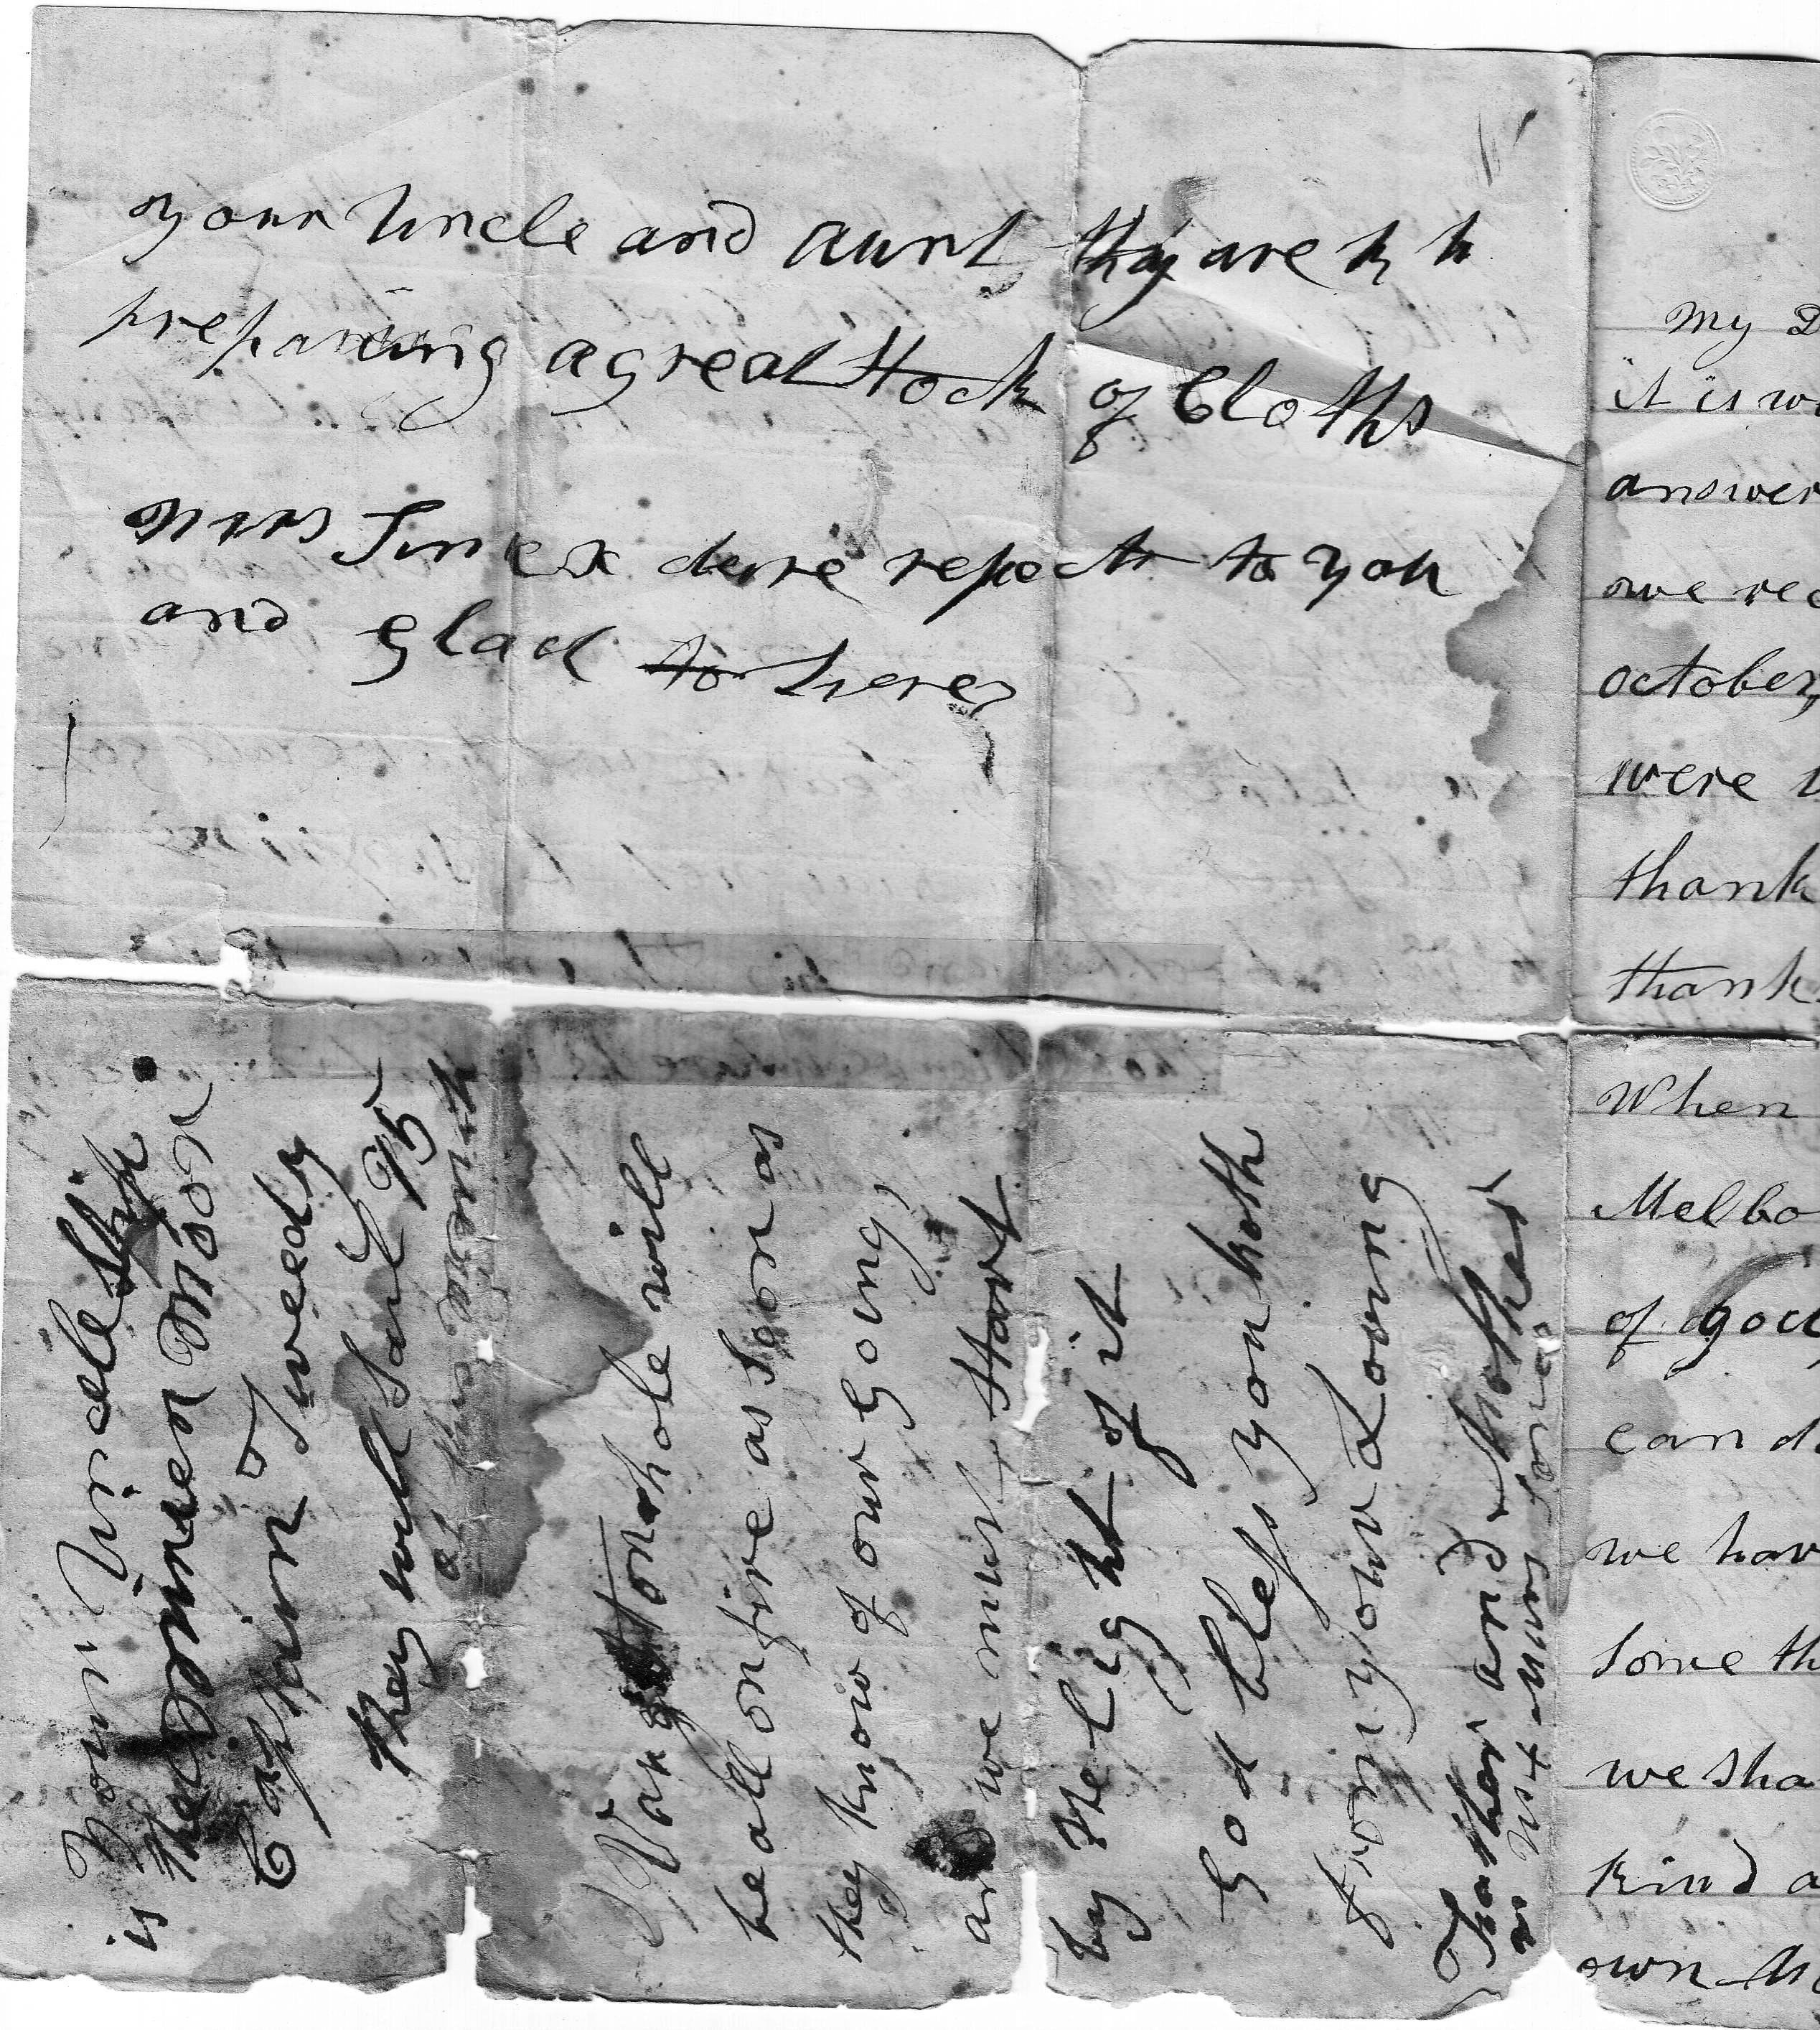 your Uncle and aunt they are
preparing a great Stock of Cloths
mrs desire respects to you
and glad to
your Uncle Ship
is the
Captain Tweedy
they will Sail 25
of this month
Vaux Tonshole will
be all on fire as Soon as
they know of our Going,
as we must start
by the light of it
God bless you both
from your Loving
Father and Mother
Mr & Mrs Jones
My D
it is w
answer
we rec
october,
were
thank
thank
When
Melbo
of you
can d
we hav
Some th
we sha
Kind a
own